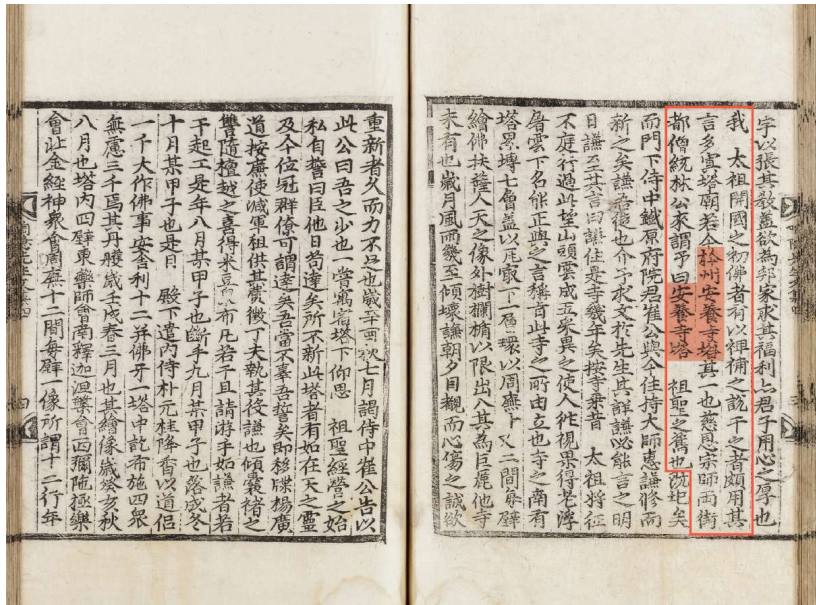 字以張其敎盖欲爲邦家求其福利上君子用心之厚也
我 太祖開國之初佛者有以裨補之說干之者頗用其
言多置塔廟若今衿州安養寺塔其一也慈恩宗師兩街
都僧統林公來謂予曰安養寺塔 祖聖之舊也旣圮矣
而門下侍中鐵原府院君崔公與今住持大師惠謙修而
新之矣謙爲後也介予求文於先生其詳謙必能言之明
日謙至其言曰謙住是寺幾年矣按寺乘昔 太祖將征
不庭行過此望山頭雲成五采異之使人徃視果得老浮
屠雲下名能正與之言稱旨此寺之所由立也寺之南有
塔累塼七層盖以瓦最下一層環以周廡十又二間每壁
繪佛扶薩人天之像外樹欄楯以限出入其爲巨麗他寺
未有也歲月風雨幾至傾壞謙朝夕目覩而心傷之誠欲
重新者久而力不足也歲辛酉秋七月謁侍中崔公告以
此公曰吾之少也一嘗寓宿塔下仰思 祖聖經營之始
私自誓曰臣他日苟達矣所不新此塔者有如在天之靈
及今位冠群僚可謂達矣吾當不辜吾誓矣即移牒楊廣
道按廉使減軍租供其費徵丁夫執其役謙也傾囊楮之
隨檀越之喜得米豆布凡若干且請游手如謙者若
干起工是年八月某甲子也斷手九月某甲子也落成冬
十月某甲子也是日 殿下遣內侍朴元桂降香以道侶
一千大作佛事安舍利十二并佛牙一塔中訖布施四衆
無慮三千焉其丹雘歲壬戌春三月也其繪像歲癸亥秋
八月也塔內四壁東藥師會南釋迦涅槃會西彌陁極樂
會北金經神衆會周廡十二間每壁一像所謂十二行年